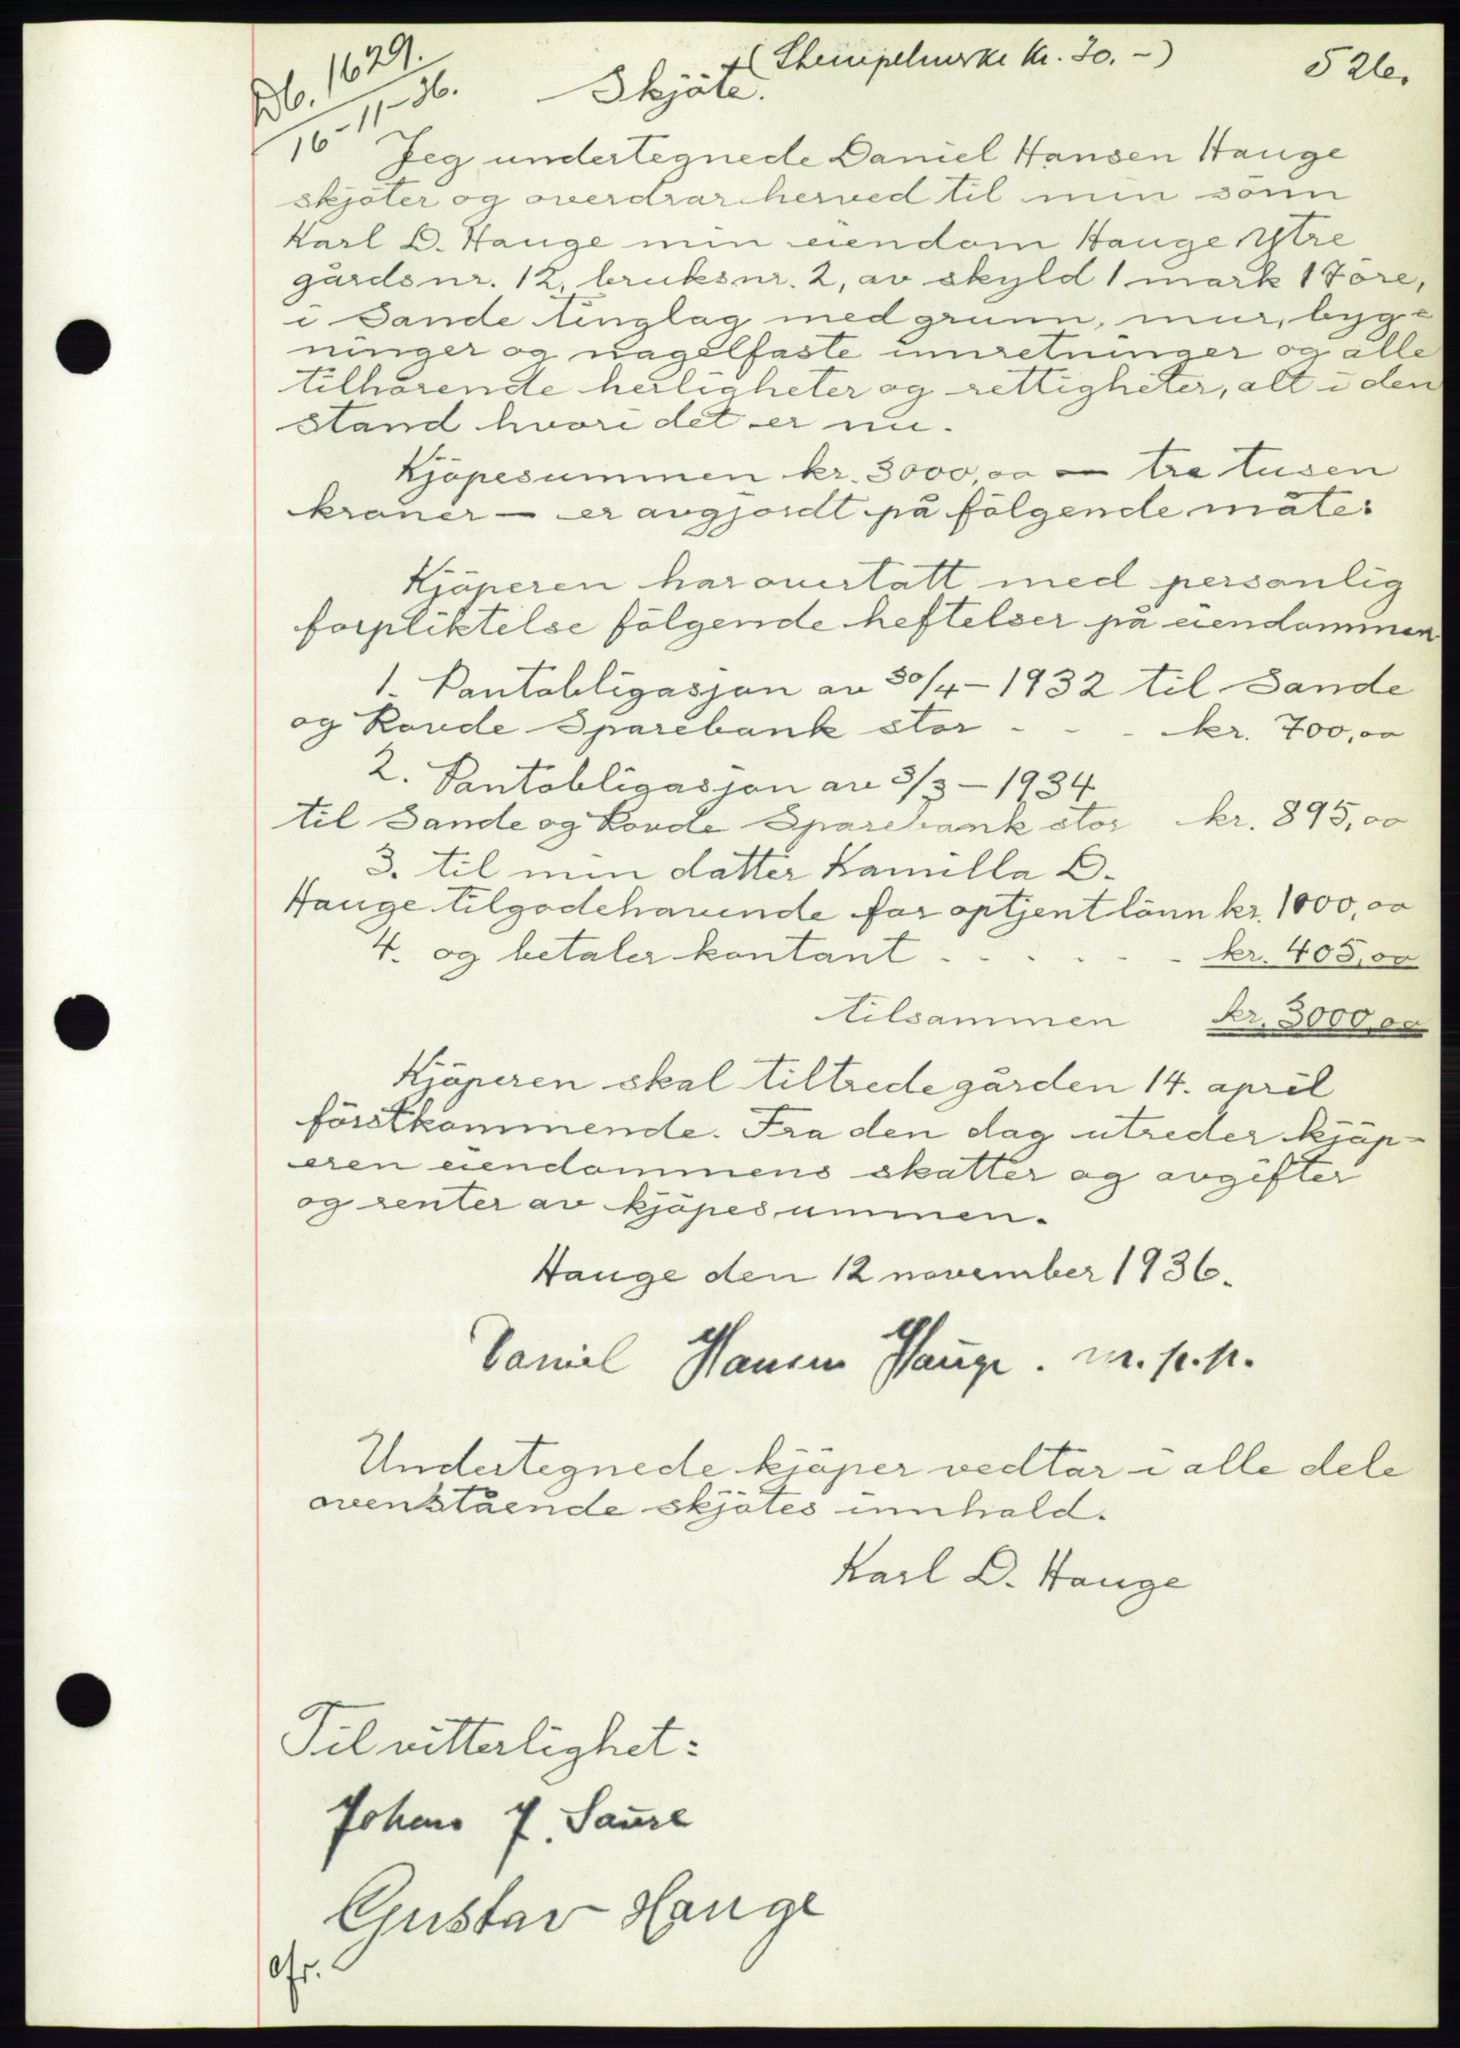 Db. 1629.
16-11-36.
(Stempelmerke kr. 30.-)
526.
Skjöte.
Jeg undertegnede Daniel Hansen Hauge
skjöter og overdrar herved til min sönn
Karl D. Hauge min eiendom Hauge ytre
gårdsnr. 12, bruksnr. 2, av skyld 1 mark 17 öre,
i Sande tinglag med grunn, mur, byg-
ninger og nagelfaste innretninger og alle
tilhörende herligheter og rettigheter, alt i den
stand hvori det er nu.
Kjöpesummen kr. 3000,00 — tre tusen
kroner — er avgjordt på fölgende måte:
Kjöperen har overtatt med personlig
forpliktelse fölgende heftelser på eiendommen
1. Pantobligasjon av 30/4-1932 til Sande
og Rovde Sparebank stor - - - kr. 700,00
2. Pantobligasjon av 3/3-1934
til Sande og Rovde Sparebank stor kr. 895,00
3. til min datter Kamilla D.
Hauge tilgodehavende for optjent lönn kr. 1000,00
4. og betaler kontant - - - - - - kr. 405,00
tilsammen kr. 3000,00
Kjöperen skal tiltrede gården 14. april
förstkommende. Fra den dag utreder kjöp-
eren eiendommens skatter og avgifter
og renter av kjöpesummen.
Hauge den 12 november 1936.
Daniel Hansen Hauge. m.p.p.
Undertegnede kjöper vedtar i alle dele
ovenstående skjötes innhold.
Karl D. Hauge
Til vitterlighet:
Johan J. Saure
Gustav Hauge